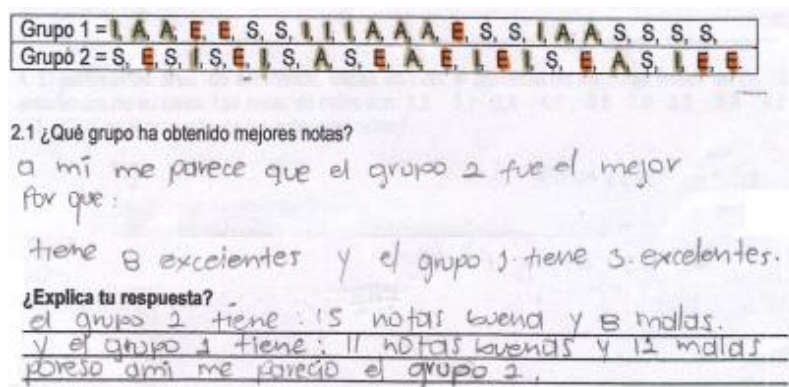 Grupo 1 = I, A, A, E, E, S, S, I, I, I, A, A, A, E, S, S, I, A, A, S, S, S, S,
Grupo 2 = S, E, S, I, S, E, I, S, A, S, E, A, E, I, E, I, S, E, A, S, I, E, E
2.1 ¿Qué grupo ha obtenido mejores notas?
a mí me parece que el grupo 2 fue el mejor
por que:
tiene 8 excelentes y el grupo 1 tiene 3 excelentes.
¿Explica tu respuesta?
el grupo 2 tiene: 15 notas buena y 8 malas.
y el grupo 1 tiene: 11 notas buenas y 12 malas
poreso ami me parecio el grupo 2.